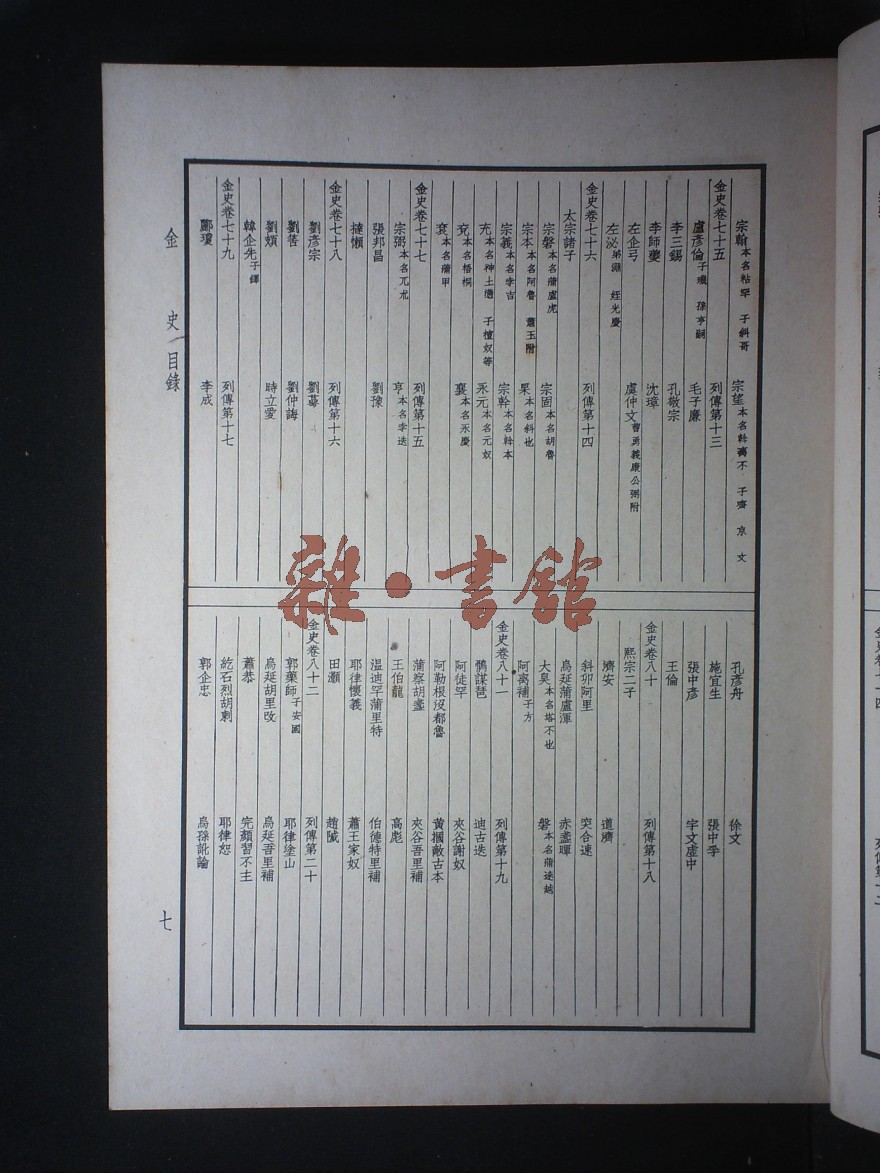 宗翰本名粘罕 子斜哥 宗望本名斡离不 子齊 京 文
金史卷七十五 列傳第十三
盧彦倫子璣 孫亨嗣 毛子廉
李三錫 孔敬宗
李師夔 沈璋
左企弓 虞仲文曹勇義康公弼附
左泌弟淵 姪光慶
金史卷七十六 列傳第十四
太宗諸子
宗磐本名蒲盧虎 宗固本名胡魯
宗本本名阿魯 蕭玉附 杲本名斜也
宗義本名孛吉 宗幹本名斡本
充本名神土懣 子檀奴等 永元本名元奴
兗本名梧桐 襄本名永慶
袞本名蒲甲
金史卷七十七 列傳第十五
宗弼本名兀朮 亨本名孛迭
張邦昌 劉豫
撻懶
金史卷七十八 列傳第十六
劉彦宗 劉萼
劉筈 劉仲誨
劉頍 時立愛
韓企先子鐸
金史卷七十九 列傳第十七
酈瓊 李成
孔彦舟 徐文
施宜生 張中孚
張中彦 宇文虛中
王倫
金史卷八十 列傳第十八
熙宗二子
濟安 道濟
斜卯阿里 突合速
烏延蒲盧渾 赤盞暉
大㚖本名塔不也 磐本名蒲速越
阿离補子方
金史卷八十一 列傳第十九
鶻謀琶 迪古迭
阿徒罕 夾谷謝奴
阿勒根沒都魯 黃摑敵古本
蒲察胡盞 夾谷吾里補
王伯龍 高彪
温迪罕蒲里特 伯德特里補
耶律懷義 蕭王家奴
田灝 趙隇
金史卷八十二 列傳第二十
郭藥師子安國 耶律塗山
烏延胡里改 烏延吾里補
蕭恭 完顏習不主
紇石烈胡剌 耶律恕
郭企忠 烏孫訛論
金 史 目錄
七
雜·書館